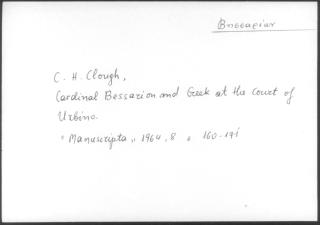 Bessarion
C. H. Clough,
Cardinal Bessarion and Greek at the Court of
Urbino.
"Manuscripta" 1964, 8, 160-171